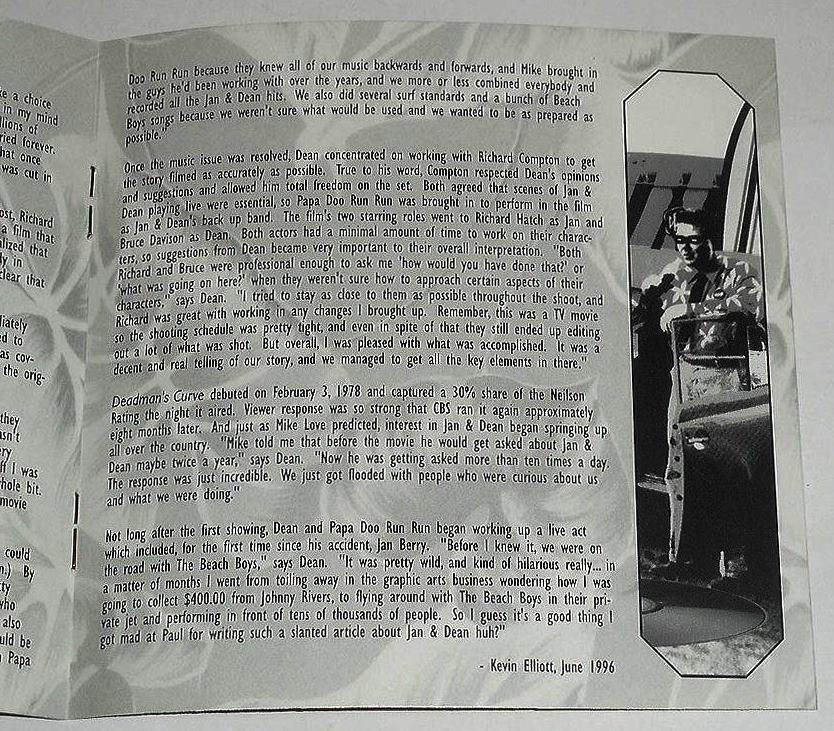 ke a choice
in my mind
lions of
ried forever.
hat once
was cut in
ost, Richard
a film that
alized that
ly in
clear that
diately
ed to
as cov-
the orig-
they
asn't
ery
ff I was
hole bit.
movie
could
n.) By
ty
who
also
uld be
n Papa
Doo Run Run because they knew all of our music backwards and forwards, and Mike brought in
the guys he'd been working with over the years, and we more or less combined everybody and
recorded all the Jan & Dean hits. We also did several surf standards and a bunch of Beach
Boys songs because we weren't sure what would be used and we wanted to be as prepared as
possible."
Once the music issue was resolved, Dean concentrated on working with Richard Compton to get
the story filmed as accurately as possible. True to his word, Compton respected Dean's opinions
and suggestions and allowed him total freedom on the set. Both agreed that scenes of Jan &
Dean playing live were essential, so Papa Doo Run Run was brought in to perform in the film
as Jan & Dean's back up band. The film's two starring roles went to Richard Hatch as Jan and
Bruce Davison as Dean. Both actors had a minimal amount of time to work on their charac-
ters, so suggestions from Dean became very important to their overall interpretation. "Both
Richard and Bruce were professional enough to ask me 'how would you have done that?' or
'what was going on here?' when they weren't sure how to approach certain aspects of their
characters," says Dean. "I tried to stay as close to them as possible throughout the shoot, and
Richard was great with working in any changes I brought up. Remember, this was a TV movie
so the shooting schedule was pretty tight, and even in spite of that they still ended up editing
out a lot of what was shot. But overall, I was pleased with what was accomplished. It was a
decent and real telling of our story, and we managed to get all the key elements in there."
Deadman's Curve debuted on February 3, 1978 and captured a 30% share of the Neilson
Rating the night it aired. Viewer response was so strong that CBS ran it again approximately
eight months later. And just as Mike Love predicted, interest in Jan & Dean began springing up
all over the country. "Mike told me that before the movie he would get asked about Jan &
Dean maybe twice a year," says Dean. "Now he was getting asked more than ten times a day.
The response was just incredible. We just got flooded with people who were curious about us
and what we were doing."
Not long after the first showing, Dean and Papa Doo Run Run began working up a live act
which included, for the first time since his accident, Jan Berry. "Before I knew it, we were on
the road with The Beach Boys," says Dean. "It was pretty wild, and kind of hilarious really... in
a matter of months I went from toiling away in the graphic arts business wondering how I was
going to collect $400.00 from Johnny Rivers, to flying around with The Beach Boys in their pri-
vate jet and performing in front of tens of thousands of people. So I guess it's a good thing I
got mad at Paul for writing such a slanted article about Jan & Dean huh?"
- Kevin Elliott, June 1996